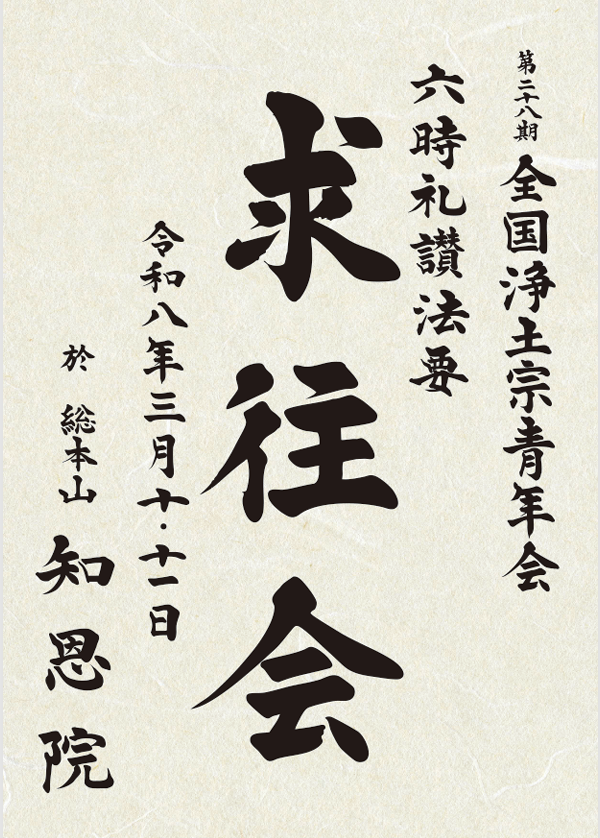 第二十八期 全国浄土宗青年会
六時礼讃法要
求往会
令和八年三月十・十一日
於 総本山 知恩院